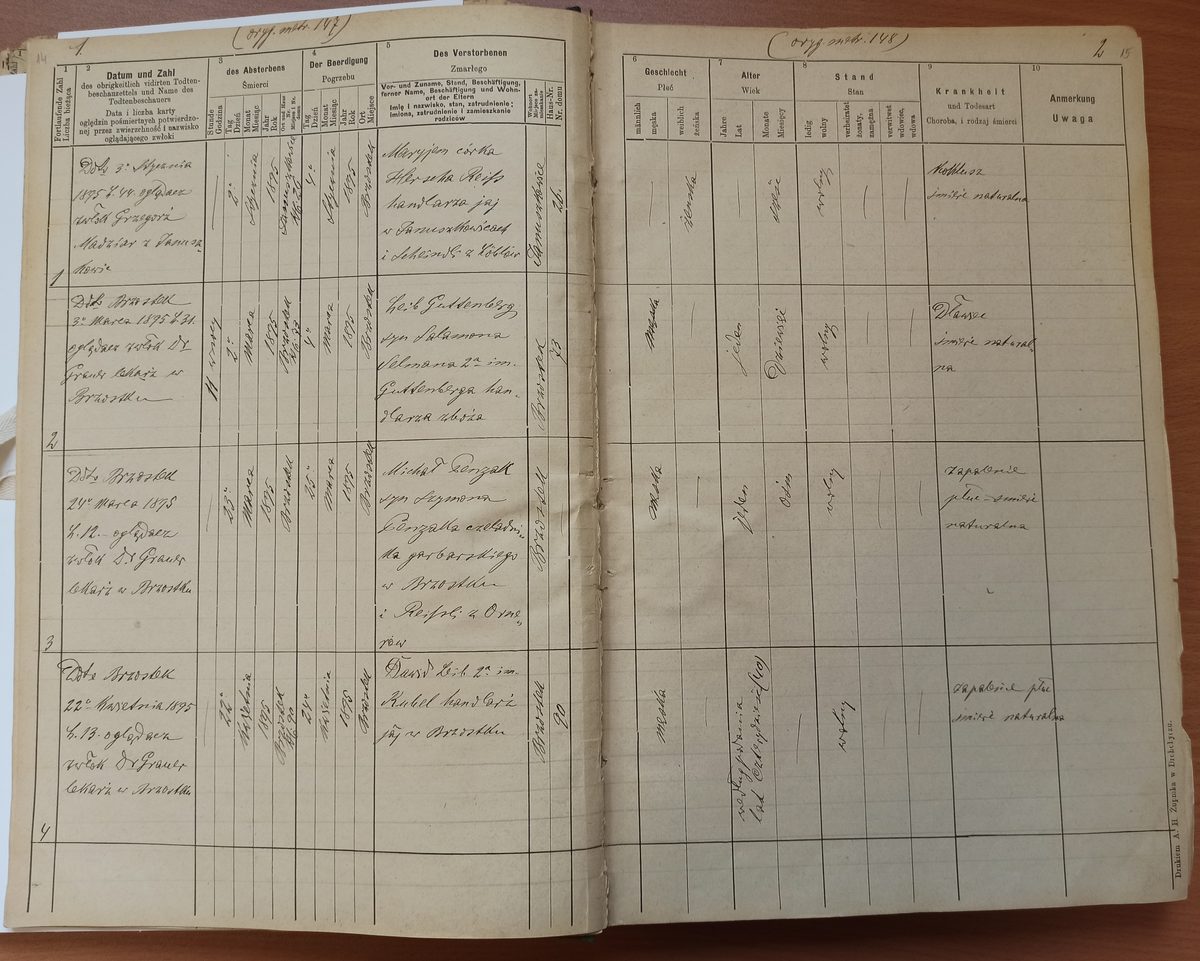 14
1.
(oryg. metr. 147)
1
Fortlaufende Zahl
Liczba bieżąca
2
Datum und Zahl
des obrigkeitlich vidirten Todten-
beschauzettels und Name des
Todtenbeschauers
Data i liczba karty
oględzin pośmiertnych potwierdzo-
nej przez zwierzchność i nazwisko
oglądającego zwłoki
3
des Absterbens
Śmierci
Stunde
Godzina
Tag
Dzień
Monat
Miesiąc
Jahr
Rok
4
Der Beerdigung
Pogrzebu
Tag
Dzień
Monat
Miesiąc
Jahr
Rok
Ort
Miejsce
5
Des Verstorbenen
Zmarłego
Vor- und Zuname, Stand, Beschäftigung,
ferner Name, Beschäftigung und Wohn-
ort der Eltern
Imię i nazwisko, stan, zatrudnienie;
imiona, zatrudnienie i zamieszkanie
rodziców
Wohnort
Miejsce za-
mieszkania
Haus-Nr.
Nr. domu
1
Dtto 3o Stycznia
1895 L. 44 oglądacz
zwłok Grzegorz
Madziar z Janusz-
kowic
2o
Stycznia
1895
Januszkowice
4o
Stycznia
1895
Brzostek
Maryjem córka
Herscha Reiss
handlarza jaj
w Januszkowicach
i Scheindli z
Januszkowice
26.
2
Dtto Brzostek
3o Marca 1895 L. 31.
oglądacz zwłok Dr
Grauer lekarz w
Brzostku
11 w nocy
2o
Marca
1895
Brzostek
No 73
4o
Marca
1895
Brzostek
Leib Guttenberg
syn Salamona
Selmana 2a im.
Guttenberga han-
dlarza zboża
Brzostek
73
3
Dtto Brzostek
24o Marca 1895
L. 12. oglądacz
zwłok Dr Grauer
lekarz w Brzostku
23o
Marca
1895
Brzostek
25o
Marca
1895
Brzostek
Michał
syn Szymona
czeladni-
ka garbarskiego
w Brzostku
i Reisli z
rów
Brzostek
4
Dtto Brzostek
22o Kwietnia 1895
L. 13. oglądacz
zwłok Dr Grauer
lekarz w Brzostku
22o
Kwietnia
1895
Brzostek
No 90
24o
Kwietnia
1895
Brzostek
Dawid Leib 2a im.
Kubel handlarz
jaj w Brzostku
Brzostek
90
(oryg. metr. 148)
2
15
6
Geschlecht
Płeć
männlich
męzka
weiblich
żeńska
7
Alter
Wiek
Jahre
Lat
Monate
Miesięcy
8
Stand
Stan
ledig
wolny
verheiratet
żonaty,
zamężna
verwitwet
wdowiec,
wdowa
9
Krankheit
und Todesart
Choroba, i rodzaj śmierci
10
Anmerkung
Uwaga
żeńska
wolny
Koklusz
śmierć naturalna
męska
jeden
Dziewięć
wolny
Dławiec
śmierć natural-
na
męska
jeden
wolny
zapalenie
płuc - śmierć
naturalna
męska
według podania
lat Czterdzieści (40)
wolny
zapalenie płuc
śmierć naturalna
Drukiem A. H. Żupnika w Drohobyczu.